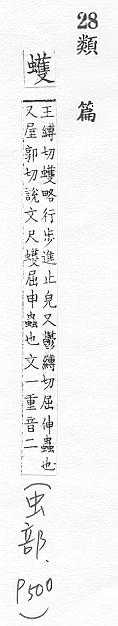 28類篇
蠖
王縛切蠖略行步進止皃又鬱縛切屈伸蟲也
又屋郭切說文尺蠖屈申蟲也文一重音二
(虫部、P500)